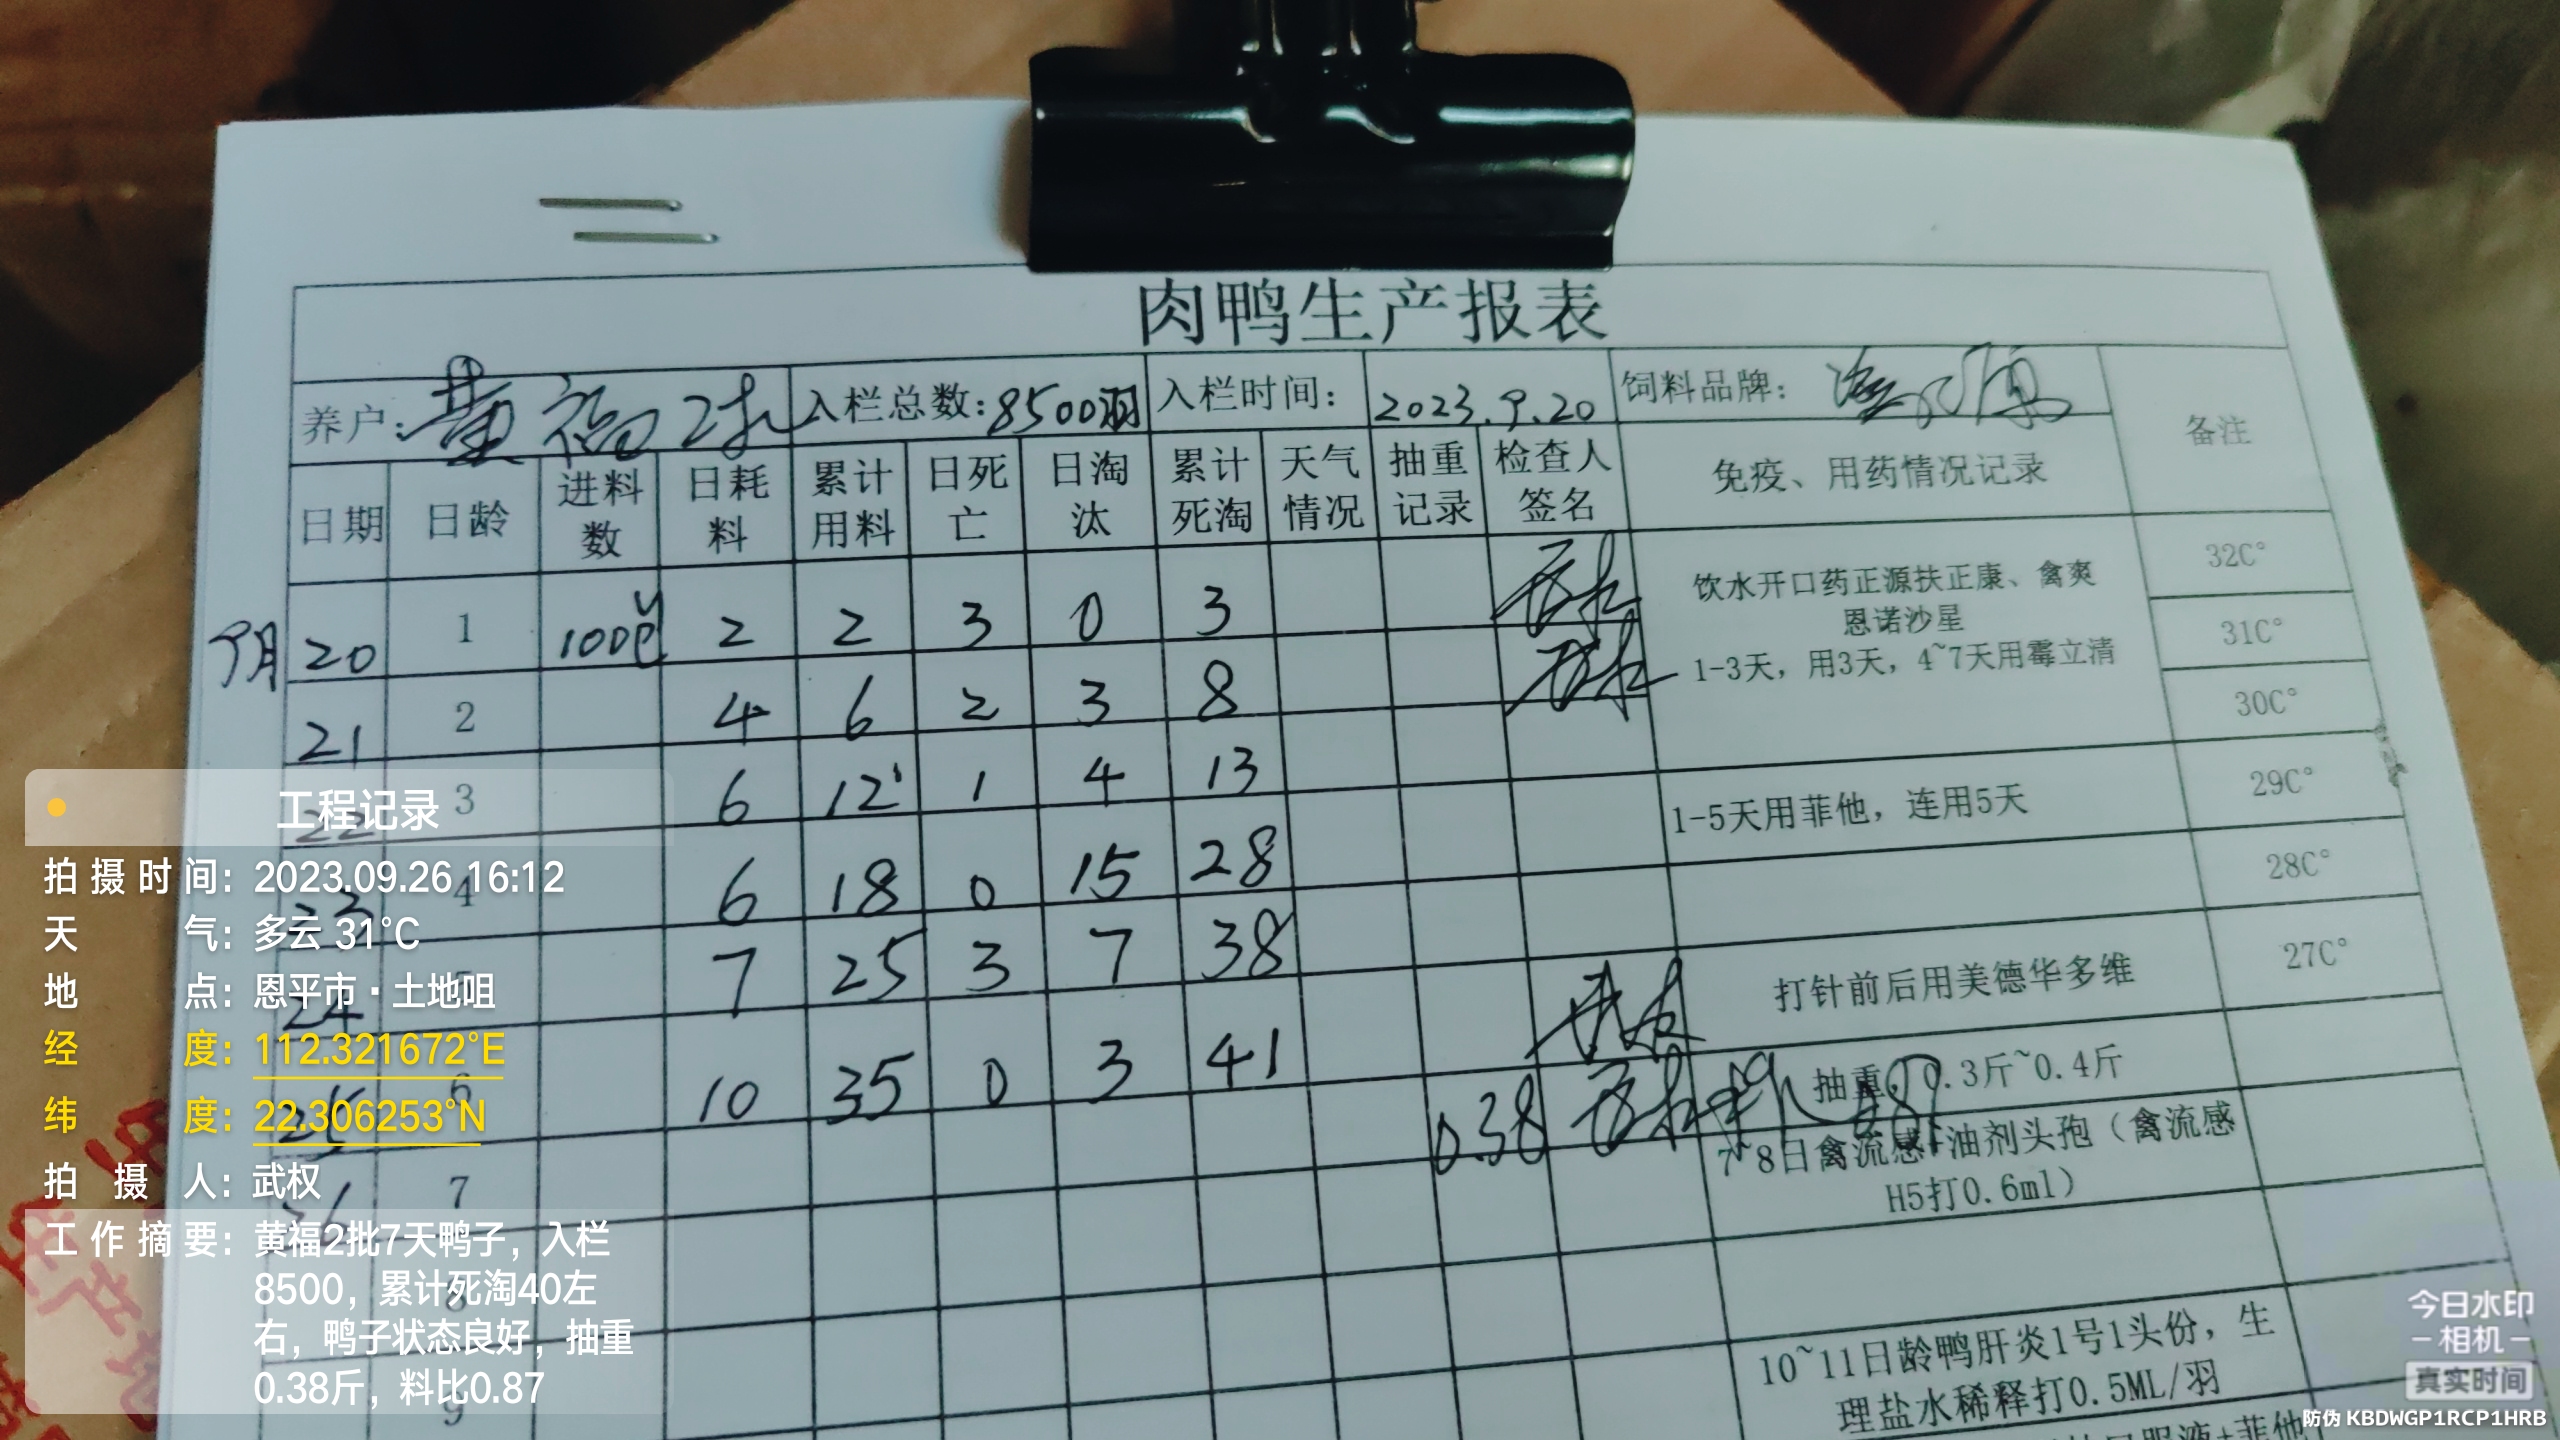 肉鸭生产报表
养户: 黄福2批 入栏总数: 8500羽 入栏时间: 2023.9.20 饲料品牌: 备注
日期 日龄 进料数 日耗料 累计用料 日死亡 日淘汰 累计死淘 天气情况 抽重记录 检查人签名 免疫、用药情况记录
9月 20 1 100包 2 2 3 0 3 32C°
饮水开口药正源扶正康、禽爽
恩诺沙星
1-3天，用3天，4~7天用霉立清
21 2 4 6 2 3 8 31C°
22 3 6 12 1 4 13 30C°
23 4 6 18 0 15 28 1-5天用菲他，连用5天 29C°
24 7 25 3 7 38 28C°
25 6 10 35 0 3 41 打针前后用美德华多维 27C°
26 7 0.38 抽重0.3斤~0.4斤
7~8日禽流感+油剂头孢（禽流感
H5打0.6ml）
8
9
10~11日龄鸭肝炎1号1头份，生
理盐水稀释打0.5ML/羽
工程记录
拍摄时间: 2023.09.26 16:12
天气: 多云 31°C
地点: 恩平市·土地咀
经度: 112.321672°E
纬度: 22.306253°N
拍摄人: 武权
工作摘要: 黄福2批7天鸭子，入栏
8500，累计死淘40左
右，鸭子状态良好，抽重
0.38斤，料比0.87
今日水印
-相机-
真实时间
防伪 KBDWGP1RCP1HRB